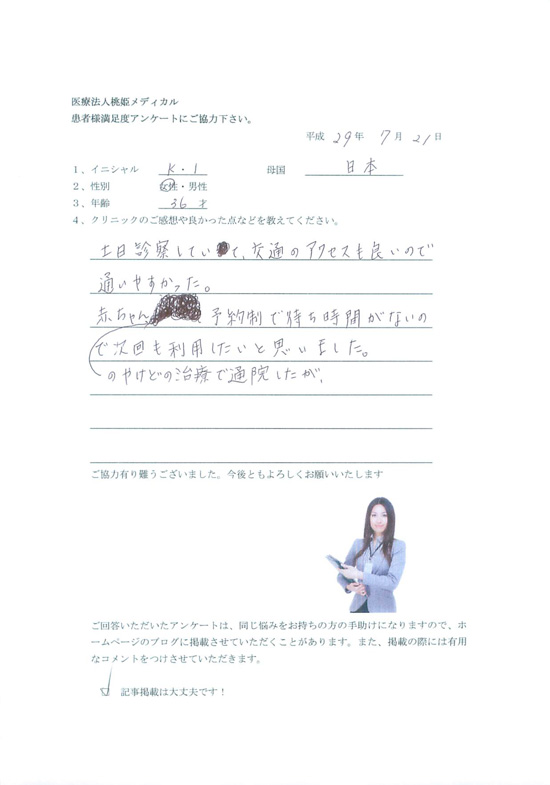 医療法人桃姫メディカル
患者様満足度アンケートにご協力下さい。
平成 29年 7月 21日
1、イニシャル K・I 母国 日本
2、性別 女性・男性
3、年齢 36才
4、クリニックのご感想や良かった点などを教えてください。
土日診察してい て、交通のアクセスも良いので
通いやすかった。
赤ちゃん 予約制で待ち時間がないの
で次回も利用したいと思いました。
のやけどの治療で通院したが、
ご協力有り難うございました。今後ともよろしくお願いいたします
ご回答いただいたアンケートは、同じ悩みをお持ちの方の手助けになりますので、ホ
ームページのブログに掲載させていただくことがあります。また、掲載の際には有用
なコメントをつけさせていただきます。
☑ 記事掲載は大丈夫です！